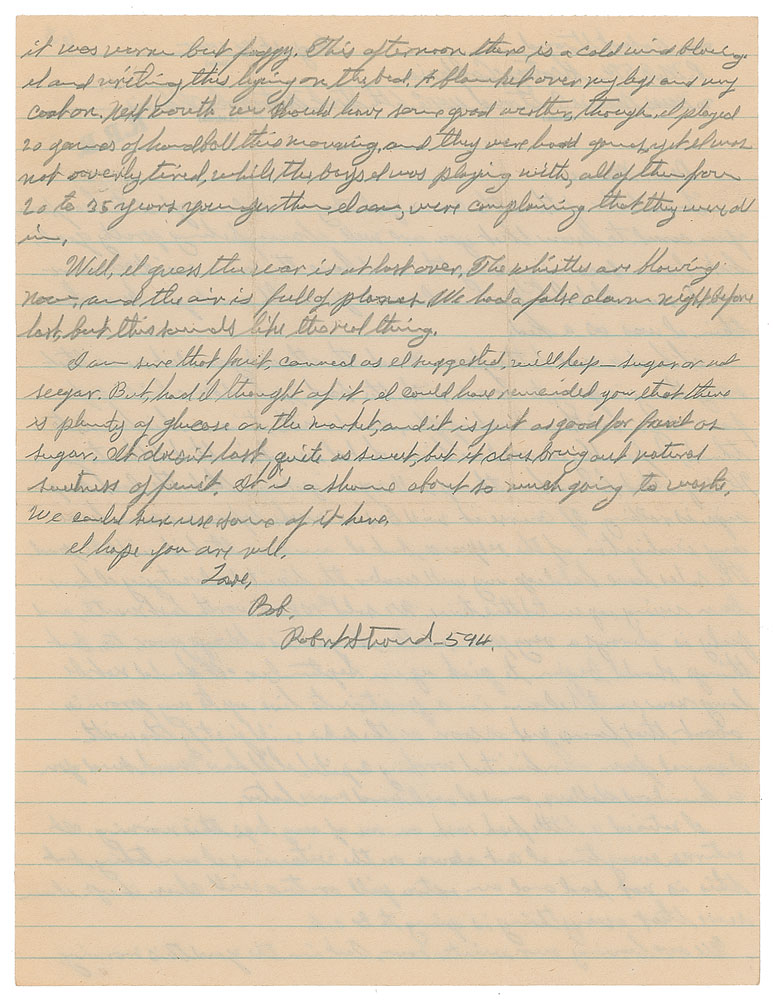 it was warm but foggy. This afternoon there is a cold wind blowing.
I am writing this lying on the bed. A blanket over my legs and my
coat on. Next month we should have some good weather, though. I played
20 games of handball this morning, and they were hard games, yet I was
not overly tired, while the boys I was playing with, all of them from
20 to 35 years younger than I am, were complaining that they were all
in.
Well, I guess the war is at last over. The whistles are blowing
now, and the air is full of planes. We had a false alarm night before
last, but this sounds like the real thing.
I am sure that fruit, canned as I suggested, will keep — sugar or not
sugar. But, had I thought of it, I could have reminded you that there
is plenty of glucose on the market, and it is just as good for fruit as
sugar. It doesn't taste quite as sweet, but it does bring out natural
sweetness of fruit. It is a shame about so much going to waste.
We could use some of it here.
I hope you are well.
Love,
Bob.
Robert Stroud—594.